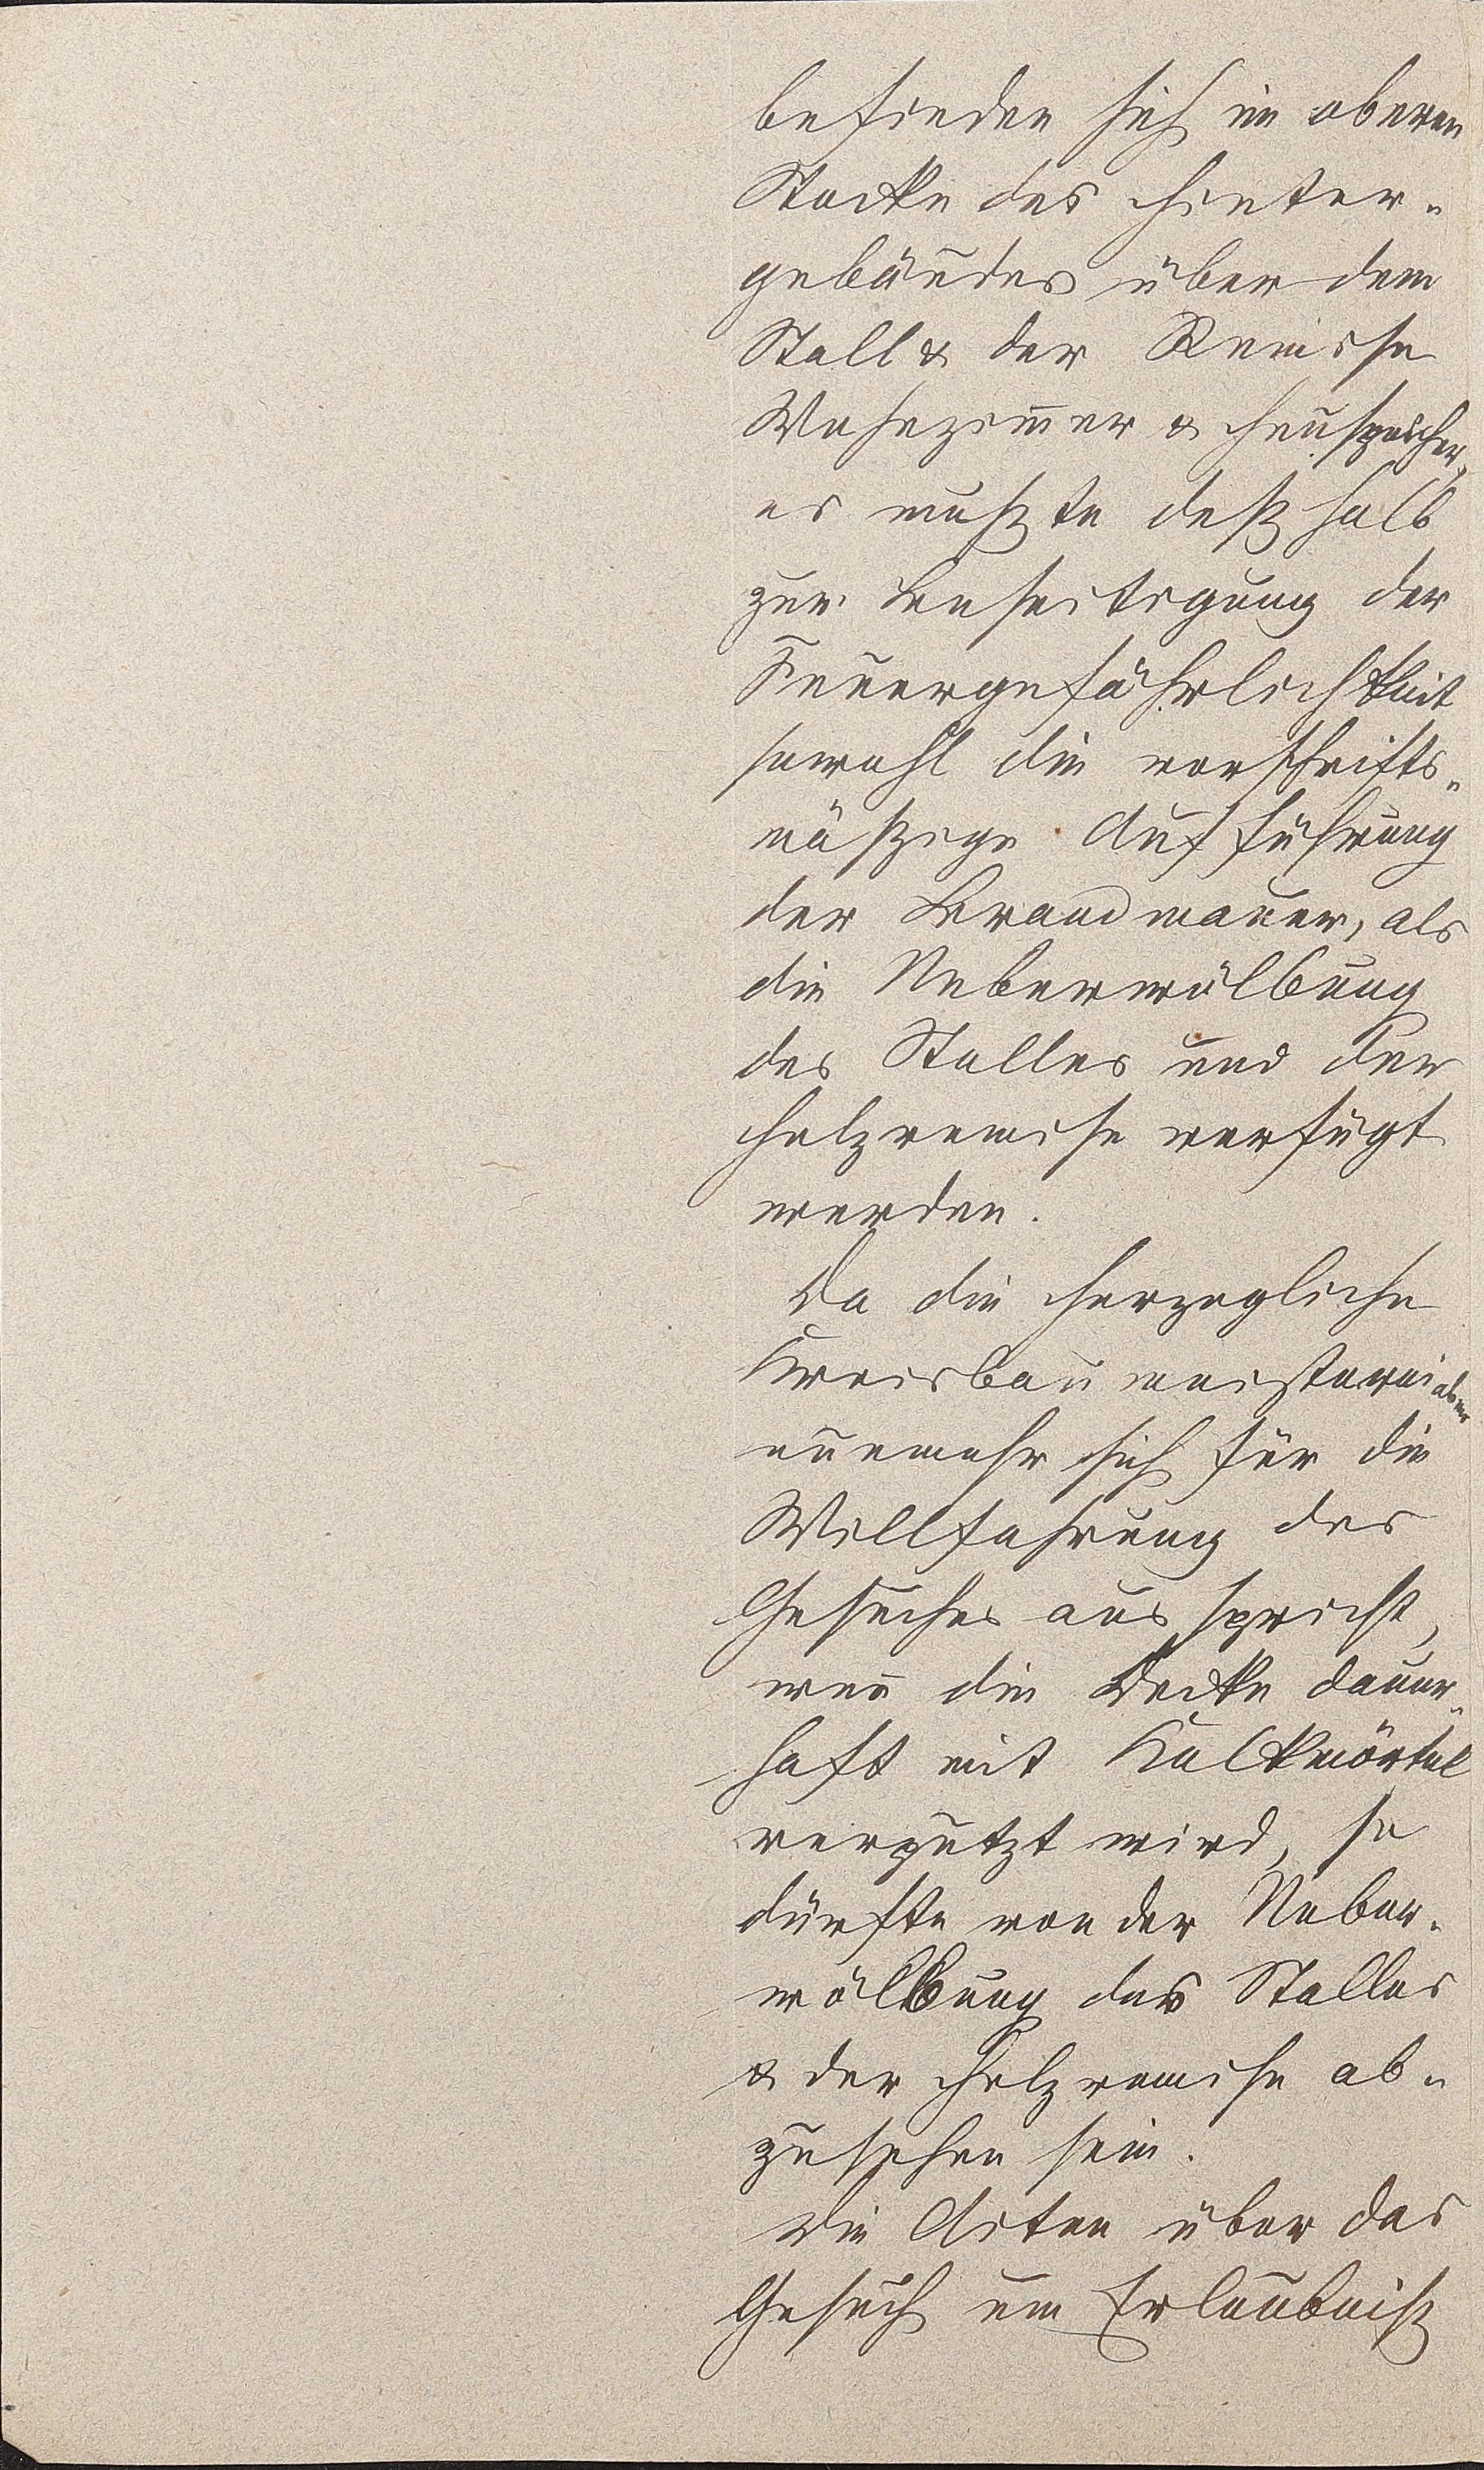 befinden sich im oberen
Stocke des Hinter-
gebäudes über dem
Stall & der Remisse
Wohnzimmer & Heuspeicher,
es mußte deßhalb
zur Beseitigung der
Feuergefährlichkeit
sowohl die vorschrifts-
mäßige Aufführung
der Brandmauer, als
die Ueberwölbung
des Stalles und der
Holzremise verfügt
werden.
Da die Herzogliche
Kreisbaumeisterei aber
nunmehr sich für die
Willfahrung des
Gesuches ausspricht,
wenn die Decke dauer-
haft mit Kalkmörtel
verputzt wird, so
dürfte von der Ueber-
wölbung des Stalles
& der Holzremise ab-
zusehen sein.
Die Akten über das
Gesuch um Erlaubniß